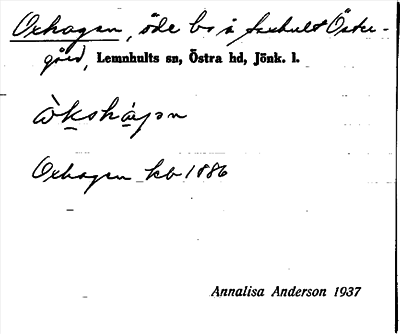 Oxhagen, öde bs å Foxhult Öster-
gård, Lemnhults sn, Östra hd, Jönk. l.
òkshágən
Oxhagen kb 1886
Annalisa Anderson 1937